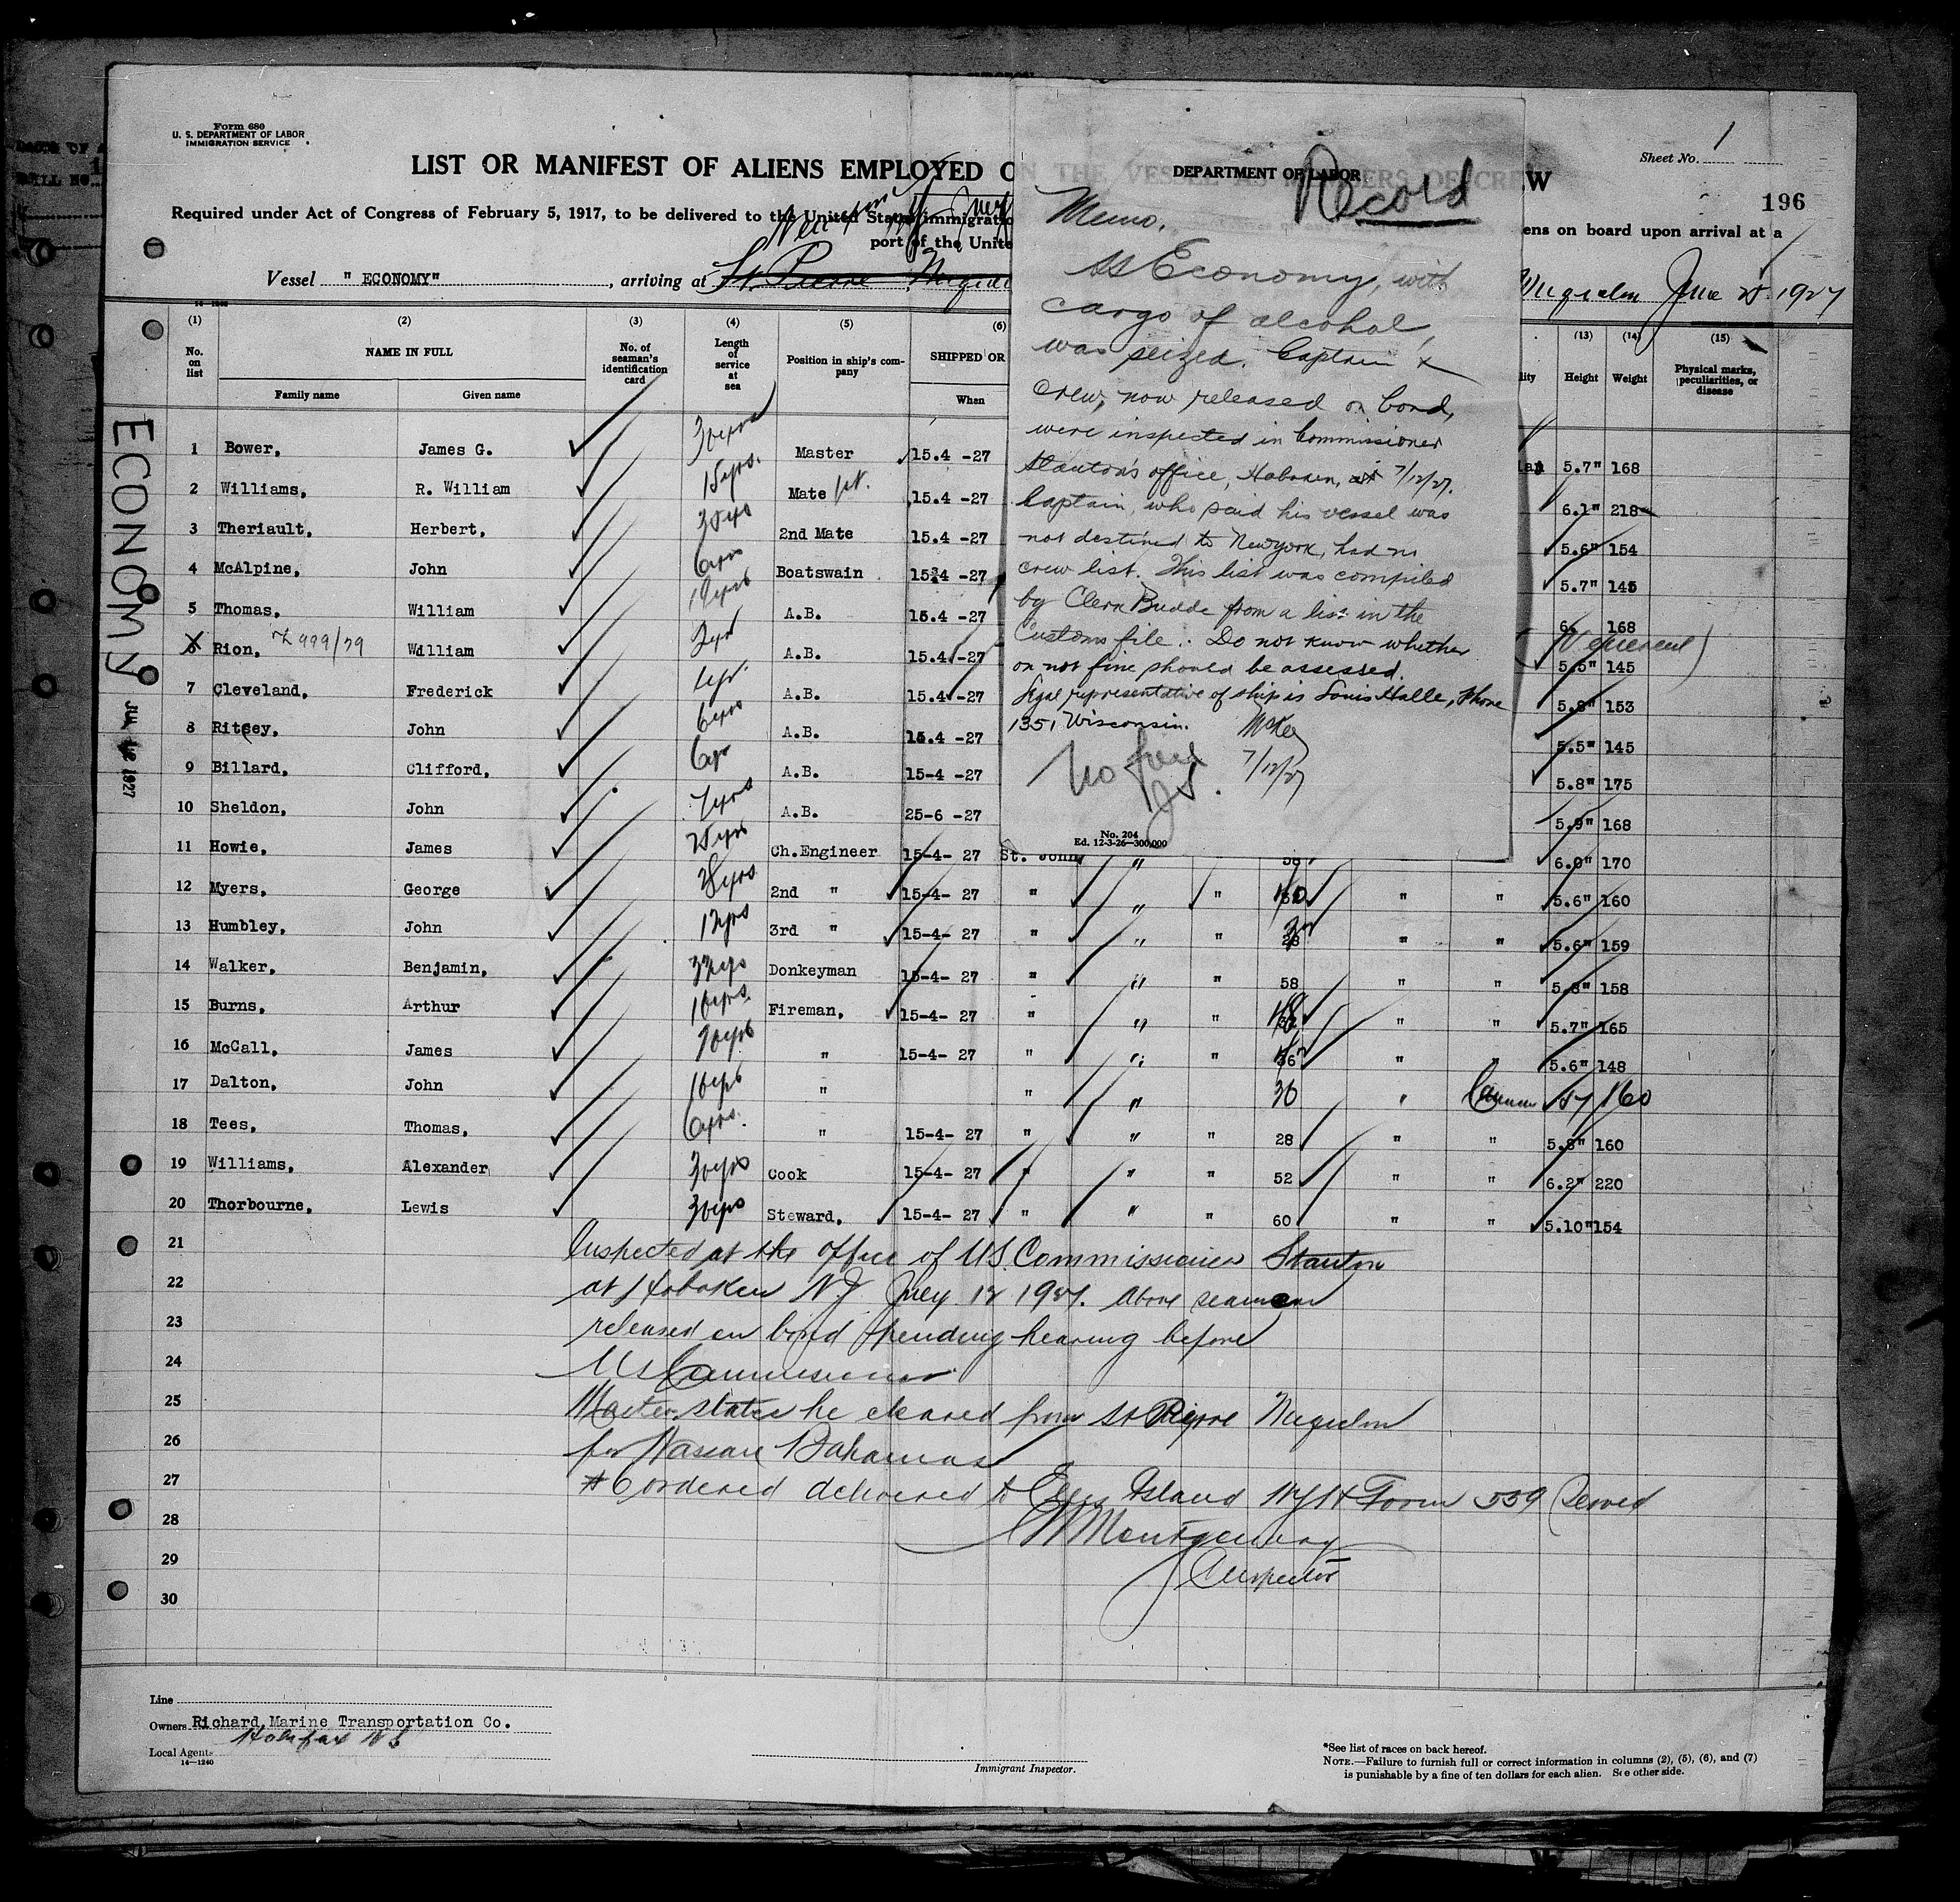 Form 680
U. S. DEPARTMENT OF LABOR
IMMIGRATION SERVICE
Sheet No. 1
LIST OR MANIFEST OF ALIENS EMPLOYED ON THE VESSEL AS MEMBERS OF CREW
196
Required under Act of Congress of February 5, 1917, to be delivered to the United States immigratio
ens on board upon arrival at a
port of the Unite
Vessel "ECONOMY", arriving at St. Pierre, Miquel
Miquelon June 25 1927
DEPARTMENT OF LABOR
Record
Memo.
SS Economy, with
cargo of alcohol,
was seized. Captain &
crew, now released on bond,
were inspected in Commissioner
Stanton's office, Hoboken, 7/12/27.
Captain, who said his vessel was
not destined to New York, had no
crew list. This list was compiled
by Clerk Budde from a list in the
Customs file. Do not know whether
or not fine should be assessed.
Legal representative of ship is Louis Halle, Phone
1351 Wisconsin. McKee
7/12/27
No fine
No. 204
Ed. 12-3-26—300,000
ECONOMY
JUL 12 1927
(1) (2) (3) (4) (5) (6) (13) (14) (15)
No. on list
NAME IN FULL
Family name Given name
No. of seaman's identification card
Length of service at sea
Position in ship's company
SHIPPED OR
When
lity
Height Weight
Physical marks, peculiarities, or disease
1 Bower, James G. 30yrs Master 15.4 -27 5.7" 168
2 Williams, R. William 15yrs. Mate 15.4 -27 6.1" 218
3 Theriault, Herbert, 2nd Mate 15.4 -27 5.6" 154
4 McAlpine, John 6yrs Boatswain 15.4 -27 5.7" 145
5 Thomas, William A.B. 15.4 -27 6. 168
6 Rion, William 2yr A.B. 15.4 -27 5.5" 145
7 Cleveland, Frederick 1yr A.B. 15.4 -27 5.8" 153
8 Ritsey, John 6yrs A.B. 15.4 -27 5.5" 145
9 Billard, Clifford, 6yr A.B. 15-4 -27 5.8" 175
10 Sheldon, John 7yrs A.B. 25-6 -27 5.9" 168
11 Howie, James 25yrs Ch.Engineer 15-4- 27 St. John 58 6.0" 170
12 Myers, George 28yrs 2nd " 15-4- 27 " " " " " 5.6" 160
13 Humbley, John 12yrs 3rd " 15-4- 27 " " " 28 " " 5.6" 159
14 Walker, Benjamin, 32yrs Donkeyman 15-4- 27 " " " 58 " " 5.8" 158
15 Burns, Arthur 10yrs. Fireman, 15-4- 27 " " " " " 5.7" 165
16 McCall, James 20yrs " 15-4- 27 " " " 36 " " 5.6" 148
17 Dalton, John 10yrs " " " 30 " 5.7 160
18 Tees, Thomas, 6yrs. " 15-4- 27 " " " 28 " " 5.8" 160
19 Williams, Alexander 30yrs Cook 15-4- 27 " " " 52 " " 6.2" 220
20 Thorbourne, Lewis 30yrs Steward, 15-4- 27 " " " 60 " " 5.10" 154
21 Inspected at the office of US Commissioner Stanton
22 at Hoboken N.J. July 12 1927. Above seamen
23 released on bond pending hearing before
24 US Commissioner
25 Master states he cleared from St Pierre Miquelon
26 for Nassau Bahamas
27 #6 ordered delivered to Ellis Island NY Form 559 Served
28 Montgomery
29 Inspector
30
Line
Owners Richard Marine Transportation Co.
Halifax NS
Local Agents
14—1240
Immigrant Inspector.
*See list of races on back hereof.
NOTE.—Failure to furnish full or correct information in columns (2), (5), (6), and (7)
is punishable by a fine of ten dollars for each alien. See other side.